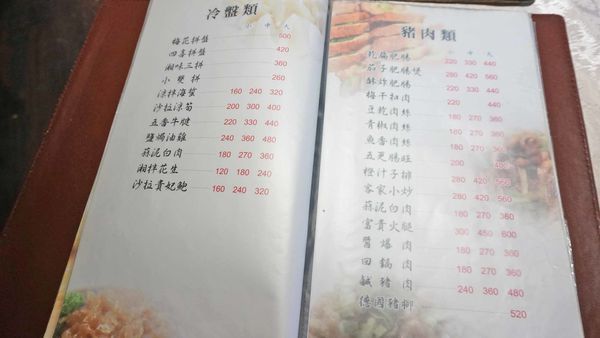 冷盤類
小 中 大
梅花拼盤 500
四喜拼盤 420
湘味三拼 360
小雙拼 260
涼拌海蜇 160 240 320
沙拉涼筍 200 300 400
五香牛腱 220 330 440
鹽焗油雞 240 360 480
蒜泥白肉 180 270 360
湘拌花生 120 180 240
沙拉貴妃鮑 160 240 320
豬肉類
小 中 大
乾扁肥腸 220 330 440
茄子肥腸煲 280 420 560
酥炸肥腸 220 330 440
梅干扣肉 220 420
豆乾肉絲 180 270 360
青椒肉絲 180 270 360
魚香肉絲 180 270 360
五更腸旺 200 400
橙汁子排 280 420 560
客家小炒 280 420 560
蒜泥白肉 180 270 360
富貴火腿 300 450 600
醬爆肉 180 270 360
回鍋肉 180 270 360
鹹豬肉 240 360 480
德國豬腳 520